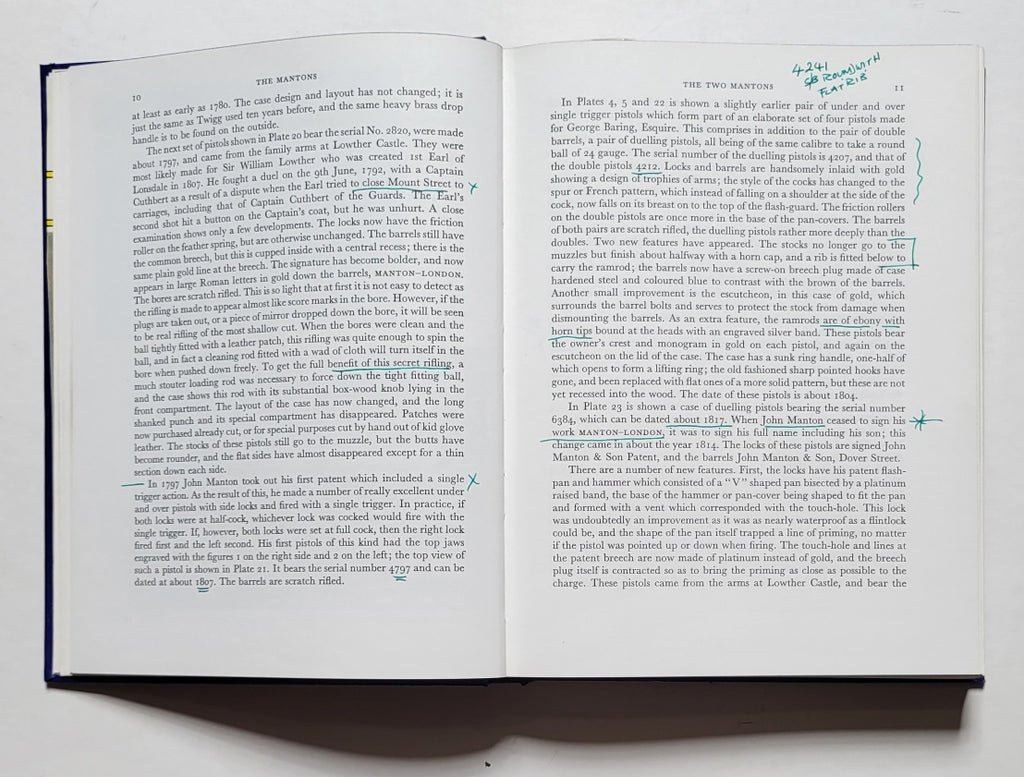 10
THE MANTONS
at least as early as 1780. The case design and layout has not changed; it is
just the same as Twigg used ten years before, and the same heavy brass drop
handle is to be found on the outside.
The next set of pistols shown in Plate 20 bear the serial No. 2820, were made
about 1797, and came from the family arms at Lowther Castle. They were
most likely made for Sir William Lowther who was created 1st Earl of
Lonsdale in 1807. He fought a duel on the 9th June, 1792, with a Captain
Cuthbert as a result of a dispute when the Earl tried to close Mount Street to
carriages, including that of Captain Cuthbert of the Guards. The Earl's
second shot hit a button on the Captain's coat, but he was unhurt. A close
examination shows only a few developments. The locks now have the friction
roller on the feather spring, but are otherwise unchanged. The barrels still have
the common breech, but this is cupped inside with a central recess; there is the
same plain gold line at the breech. The signature has become bolder, and now
appears in large Roman letters in gold down the barrels, MANTON–LONDON.
The bores are scratch rifled. This is so light that at first it is not easy to detect as
the rifling is made to appear almost like score marks in the bore. However, if the
plugs are taken out, or a piece of mirror dropped down the bore, it will be seen
to be real rifling of the most shallow cut. When the bores were clean and the
ball tightly fitted with a leather patch, this rifling was quite enough to spin the
ball, and in fact a cleaning rod fitted with a wad of cloth will turn itself in the
bore when pushed down freely. To get the full benefit of this secret rifling, a
much stouter loading rod was necessary to force down the tight fitting ball,
and the case shows this rod with its substantial box-wood knob lying in the
front compartment. The layout of the case has now changed, and the long
shanked punch and its special compartment has disappeared. Patches were
now purchased already cut, or for special purposes cut by hand out of kid glove
leather. The stocks of these pistols still go to the muzzle, but the butts have
become rounder, and the flat sides have almost disappeared except for a thin
section down each side.
In 1797 John Manton took out his first patent which included a single
trigger action. As the result of this, he made a number of really excellent under
and over pistols with side locks and fired with a single trigger. In practice, if
both locks were at half-cock, whichever lock was cocked would fire with the
single trigger. If, however, both locks were set at full cock, then the right lock
fired first and the left second. His first pistols of this kind had the top jaws
engraved with the figures 1 on the right side and 2 on the left; the top view of
such a pistol is shown in Plate 21. It bears the serial number 4797 and can be
dated at about 1807. The barrels are scratch rifled.
THE TWO MANTONS
11
4241
S/B ROUND WITH
FLAT RIB
In Plates 4, 5 and 22 is shown a slightly earlier pair of under and over
single trigger pistols which form part of an elaborate set of four pistols made
for George Baring, Esquire. This comprises in addition to the pair of double
barrels, a pair of duelling pistols, all being of the same calibre to take a round
ball of 24 gauge. The serial number of the duelling pistols is 4207, and that of
the double pistols 4212. Locks and barrels are handsomely inlaid with gold
showing a design of trophies of arms; the style of the cocks has changed to the
spur or French pattern, which instead of falling on a shoulder at the side of the
cock, now falls on its breast on to the top of the flash-guard. The friction rollers
on the double pistols are once more in the base of the pan-covers. The barrels
of both pairs are scratch rifled, the duelling pistols rather more deeply than the
doubles. Two new features have appeared. The stocks no longer go to the
muzzles but finish about halfway with a horn cap, and a rib is fitted below to
carry the ramrod; the barrels now have a screw-on breech plug made of case
hardened steel and coloured blue to contrast with the brown of the barrels.
Another small improvement is the escutcheon, in this case of gold, which
surrounds the barrel bolts and serves to protect the stock from damage when
dismounting the barrels. As an extra feature, the ramrods are of ebony with
horn tips bound at the heads with an engraved silver band. These pistols bear
the owner's crest and monogram in gold on each pistol, and again on the
escutcheon on the lid of the case. The case has a sunk ring handle, one-half of
which opens to form a lifting ring; the old fashioned sharp pointed hooks have
gone, and been replaced with flat ones of a more solid pattern, but these are not
yet recessed into the wood. The date of these pistols is about 1804.
In Plate 23 is shown a case of duelling pistols bearing the serial number
6384, which can be dated about 1817. When John Manton ceased to sign his
work MANTON–LONDON, it was to sign his full name including his son; this
change came in about the year 1814. The locks of these pistols are signed John
Manton & Son Patent, and the barrels John Manton & Son, Dover Street.
There are a number of new features. First, the locks have his patent flash-
pan and hammer which consisted of a "V" shaped pan bisected by a platinum
raised band, the base of the hammer or pan-cover being shaped to fit the pan
and formed with a vent which corresponded with the touch-hole. This lock
was undoubtedly an improvement as it was as nearly waterproof as a flintlock
could be, and the shape of the pan itself trapped a line of priming, no matter
if the pistol was pointed up or down when firing. The touch-hole and lines at
the patent breech are now made of platinum instead of gold, and the breech
plug itself is contracted so as to bring the priming as close as possible to the
charge. These pistols came from the arms at Lowther Castle, and bear the